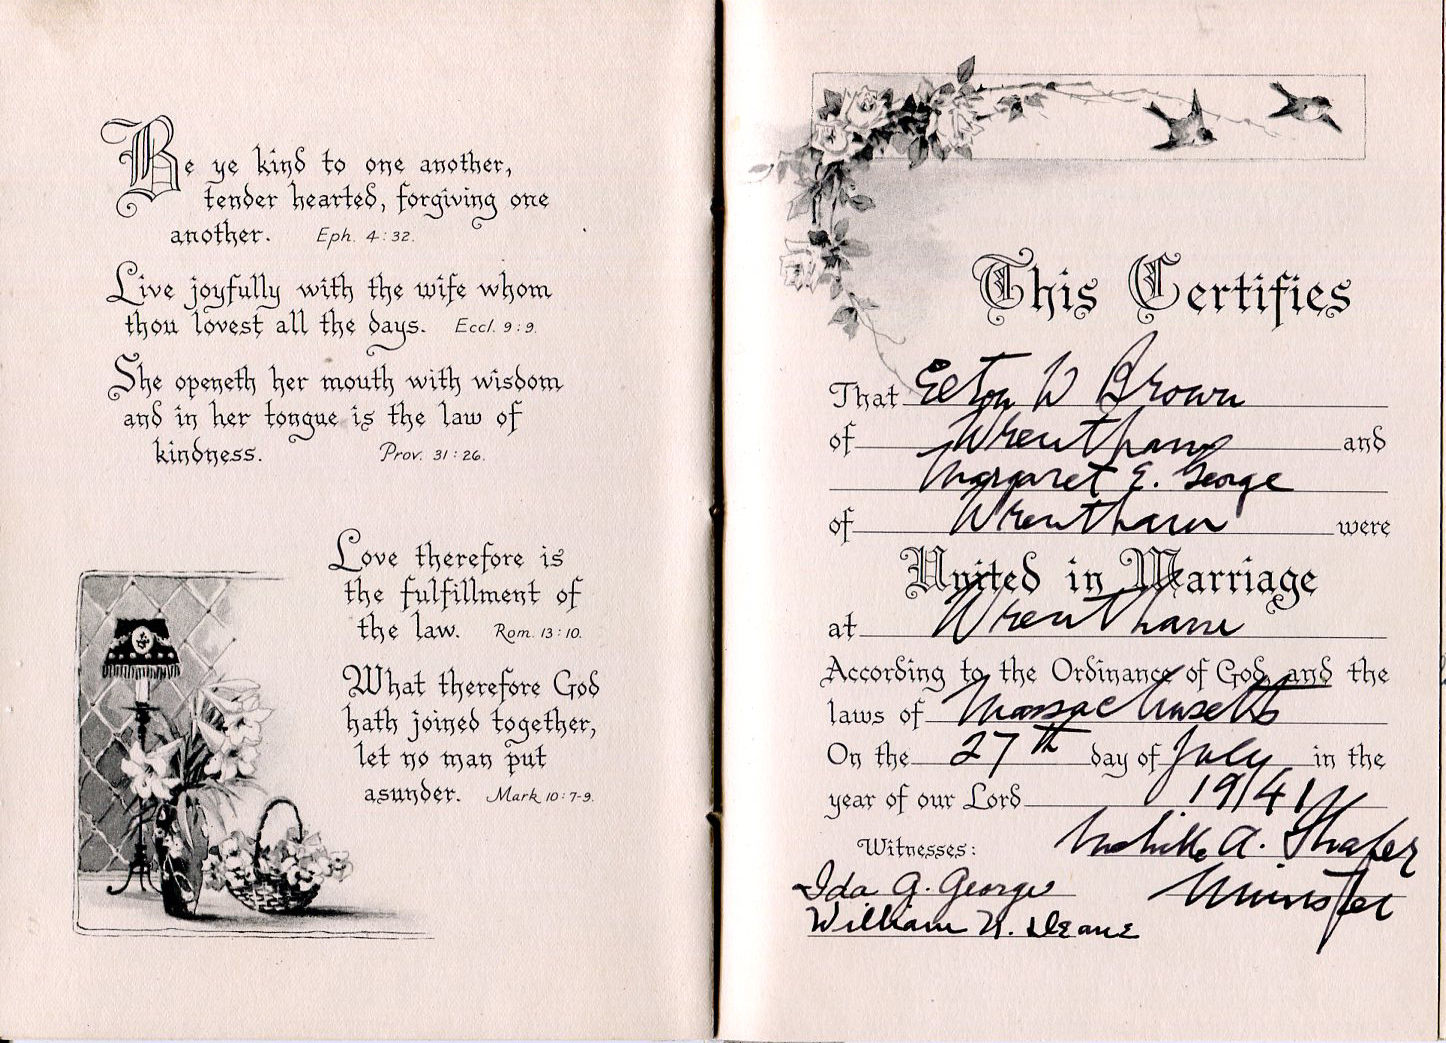 Be ye kind to one another,
tender hearted, forgiving one
another. Eph. 4:32.
Live joyfully with the wife whom
thou lovest all the days. Eccl. 9:9.
She openeth her mouth with wisdom
and in her tongue is the law of
kindness. Prov. 31:26.
Love therefore is
the fulfillment of
the law. Rom. 13:10.
What therefore God
hath joined together,
let no man put
asunder. Mark 10:7-9.
This Certifies
That Elton W Brown
of Wrentham and
Margaret E. George
of Wrentham were
United in Marriage
at Wrentham
According to the Ordinance of God, and the
laws of Massachusetts
On the 27th day of July in the
year of our Lord 1941
Witnesses: A.
Ida G. George Minister
William Deane